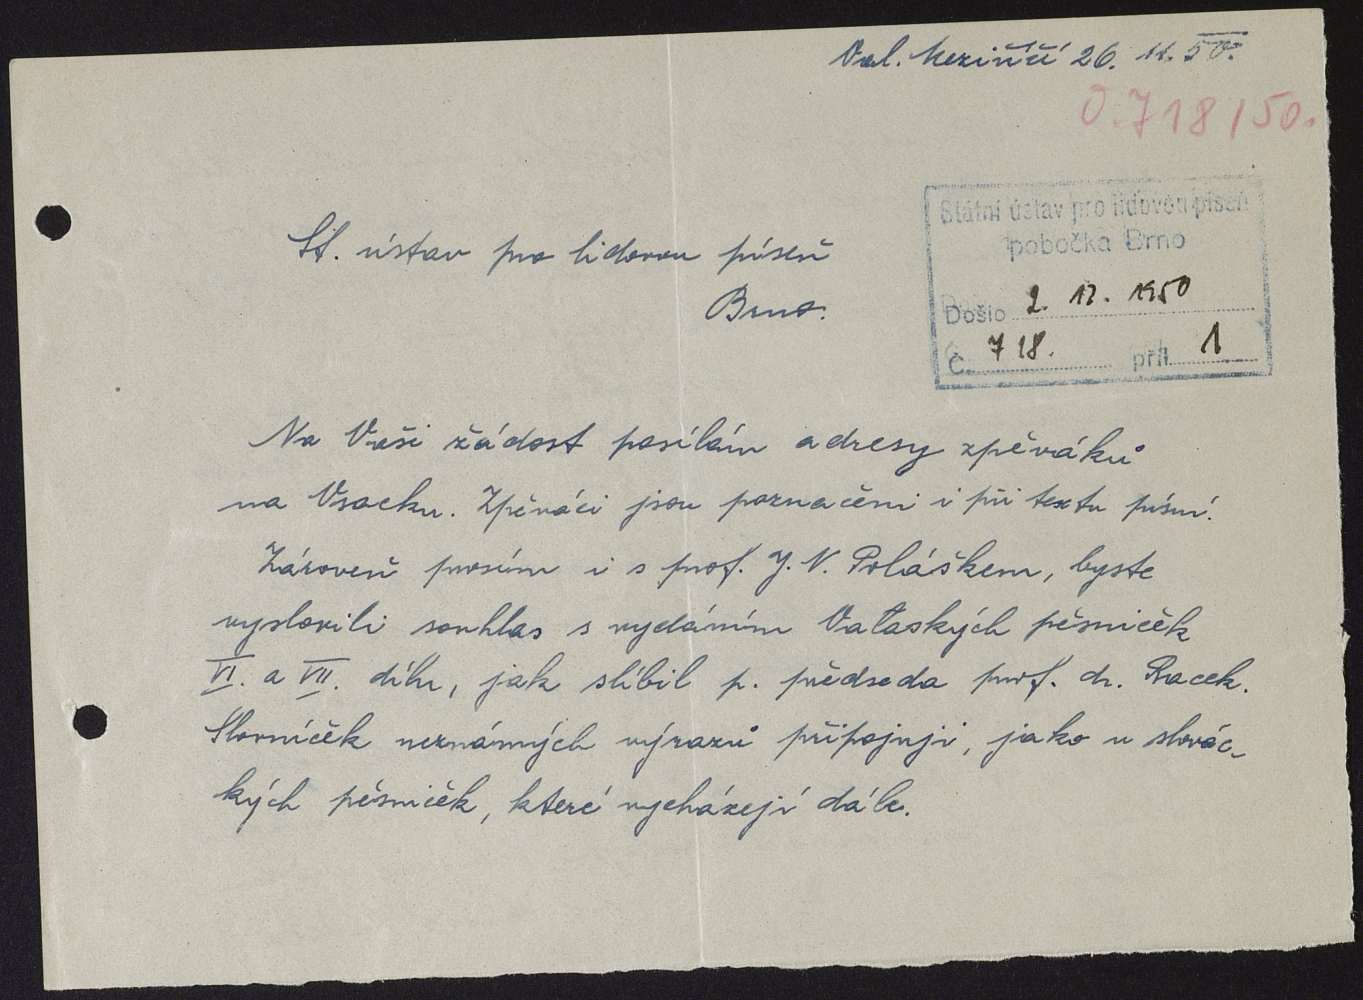 Val. Meziříčí 26. 11. 50.
O.718/50.
Státní ústav pro lidovou píseň
pobočka Brno
Došlo 2. 12. 1950
Č. 718. příl. 1
St. ústav pro lidovou píseň
Brno.
Na Vaši žádost posílám adresy zpěváků
na Vsacku. Zpěváci jsou poznačeni i při textu písní.
Zároveň prosím i s prof. J. N. Poláškem, byste
vyslovili souhlas s vydáním Valaských pěsniček
VI. a VII. dílu, jak slíbil p. předseda prof. dr. Racek.
Slovníček neznámých výrazů připojuji, jako u slovác-
kých pěsniček, které vycházejí dále.